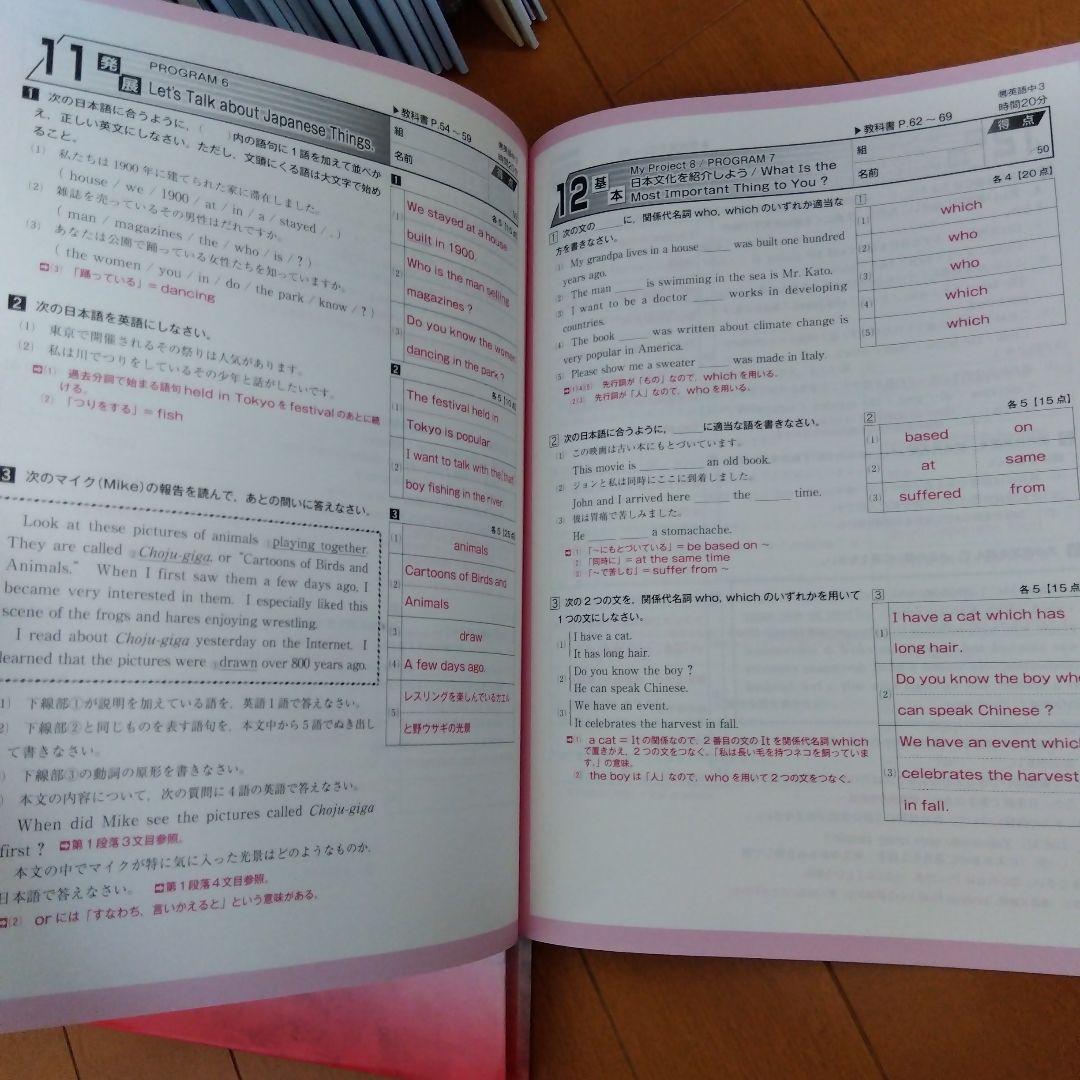 11 発展 PROGRAM 6
Let's Talk about Japanese Things.
▶教科書 P.54～59
組
名前
1 次の日本語に合うように、( )内の語句に1語を加えて並べか
え、正しい英文にしなさい。ただし、文頭にくる語は大文字で始め
ること。
(1) 私たちは1900年に建てられた家に滞在しました。
( house / we / 1900 / at / in / a / stayed / . )
(2) 雑誌を売っているその男性はだれですか。
( man / magazines / the / who / is / ? )
(3) あなたは公園で踊っている女性たちを知っていますか。
( the women / you / in / do / the park / know / ? )
➡(3) 「踊っている」= dancing
2 次の日本語を英語にしなさい。
(1) 東京で開催されるその祭りは人気があります。
(2) 私は川でつりをしているその少年と話がしたいです。
➡(1) 過去分詞で始まる語句 held in Tokyo を festival のあとに続
ける。
(2) 「つりをする」= fish
3 次のマイク(Mike)の報告を読んで、あとの問いに答えなさい。
Look at these pictures of animals ①playing together.
They are called ②Choju-giga, or "Cartoons of Birds and
Animals." When I first saw them a few days ago, I
became very interested in them. I especially liked this
scene of the frogs and hares enjoying wrestling.
I read about Choju-giga yesterday on the Internet. I
learned that the pictures were ③drawn over 800 years ago.
1) 下線部①が説明を加えている語を、英語1語で答えなさい。
2) 下線部②と同じものを表す語句を、本文中から5語でぬき出し
て書きなさい。
) 下線部③の動詞の原形を書きなさい。
) 本文の内容について、次の質問に4語の英語で答えなさい。
When did Mike see the pictures called Choju-giga
first ? ➡第1段落3文目参照。
本文の中でマイクが特に気に入った光景はどのようなものか、
日本語で答えなさい。 ➡第1段落4文目参照。
➡(2) or には「すなわち、言いかえると」という意味がある。
1
各5【15点】
(1) We stayed at a house
built in 1900.
(2) Who is the man selling
magazines ?
(3) Do you know the women
dancing in the park ?
2
各5【10点】
(1) The festival held in
Tokyo is popular.
(2) I want to talk with the(that)
boy fishing in the river.
3
各5【25点】
(1) animals
(2) Cartoons of Birds and
Animals
(3) draw
(4) A few days ago.
(5) レスリングを楽しんでいるカエル
と野ウサギの光景
12 基本 My Project 8 / PROGRAM 7
日本文化を紹介しよう / What Is the
Most Important Thing to You ?
▶教科書 P.62～69
組
名前
英語中3
時間20分
得点
/50
1 次の文の____に、関係代名詞 who, which のいずれか適当な
方を書きなさい。
(1) My grandpa lives in a house ____ was built one hundred
years ago.
(2) The man ____ is swimming in the sea is Mr. Kato.
(3) I want to be a doctor ____ works in developing
countries.
(4) The book ____ was written about climate change is
very popular in America.
(5) Please show me a sweater ____ was made in Italy.
➡(1)(4)(5) 先行詞が「もの」なので、which を用いる。
(2)(3) 先行詞が「人」なので、who を用いる。
1
各4【20点】
(1) which
(2) who
(3) who
(4) which
(5) which
2 次の日本語に合うように、____に適当な語を書きなさい。
(1) この映画は古い本にもとづいています。
This movie is ____ ____ an old book.
(2) ジョンと私は同時にここに到着しました。
John and I arrived here ____ the ____ time.
(3) 彼は胃痛で苦しみました。
He ____ ____ a stomachache.
➡(1) 「～にもとづいている」= be based on ～
(2) 「同時に」= at the same time
(3) 「～で苦しむ」= suffer from ～
2
各5【15点】
(1) based on
(2) at same
(3) suffered from
3 次の2つの文を、関係代名詞 who, which のいずれかを用いて
1つの文にしなさい。
(1) I have a cat.
It has long hair.
(2) Do you know the boy ?
He can speak Chinese.
(3) We have an event.
It celebrates the harvest in fall.
➡(1) a cat = It の関係なので、2番目の文の It を関係代名詞 which
で置きかえ、2つの文をつなぐ。「私は長い毛を持つネコを飼っていま
す。」の意味。
(2) the boy は「人」なので、who を用いて2つの文をつなぐ。
3
各5【15点
(1) I have a cat which has
long hair.
(2) Do you know the boy who
can speak Chinese ?
(3) We have an event which
celebrates the harvest
in fall.